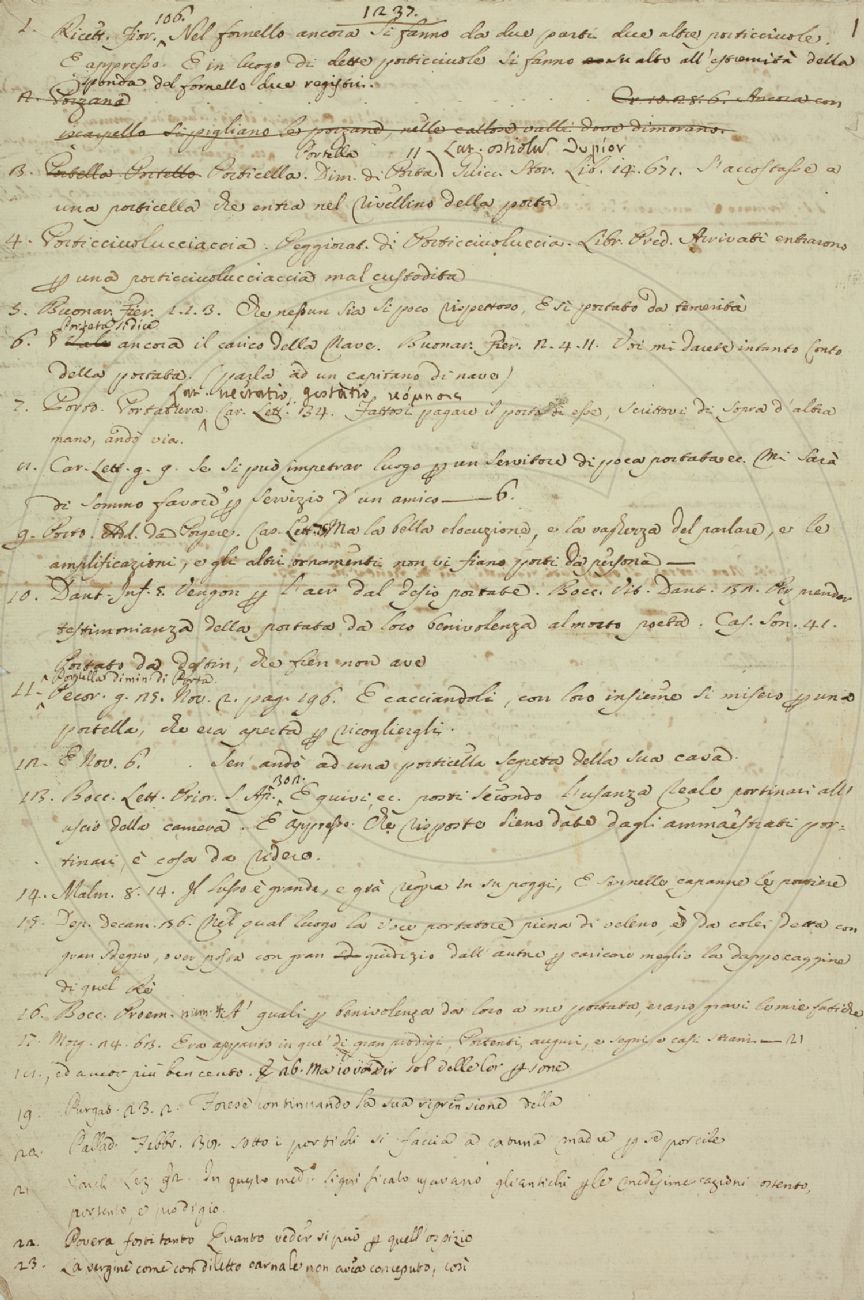 1237.
1
106.
1. Ricett. Fior. Nel fornello ancora si fanno da due parti due altre porticciuole.
E appresso. E in luogo di dette porticciuole si fanno su alto all'estremità della
sponda del fornello due registri.
2. Porzana Cr. 10. 28. 6. Ancora con
iscarpello si pigliano le porzane, nelle valli dove dimorano.
Portella 11 Lat. ostiolum
3. Portella Portello Porticella. Dim. di Porta Stor. Lib. 14. 671. S'accostasse a
una porticella che entra nel rivellino della porta
4. Porticciuolucciaccia. Peggiorat. di Porticciuoluccia. Libr. Pred. Arrivati entrarono
p una porticciuolucciaccia mal custodita
5. Buonar. Fier. 1. 1. 3. Che nessun sia sì poco rispettoso, E sì portato da temerità
Portata si dice
6. § ancora il carico della Nave. Buonar. Fier. 2. 4. 11. Voi mi darete intanto conto
della portata. (parla ad un capitano di nave)
Lat. gestatio
7. Porto. Portatura. Car. Lett. 134. Fattosi pagare il porto di esse, scrittovi di sopra d'altra
mano, andò via.
8. Car. Lett. 9. 9. Se si può impetrar luogo p un servitore di poca portata ec. Mi sarà
di sommo favore p servizio d'un amico — 6.
9. Porto. Add. da Porgere. Cas. Lett. Ma la bella elocuzione, e la vaghezza del parlare, e le
amplificazioni, e gli altri ornamenti non vi siano porti da persona —
10. Dant. Inf. 5. Vengon p l'aer dal desio portate. Bocc. Vit. Dant. Per prender
testimonianza della portata da loro benivolenza al morto poeta. Cas. Son. 41.
Portato da destin, che fren non ave
Portella dimin. di Porta
11. Pecor. g. 25. Nov. 2. pag. 196. E cacciandoli, con loro insieme si misero p una
portella, che era aperta p ricogliergli.
12. E Nov. 6. Sen' andò ad una porticella segreta della sua casa.
302.
13. Bocc. Lett. Prior. S. Ap. E quivi, ec. posti secondo l'usanza reale portinari all'
uscio della camera. E appresso. Che risposte sieno date dagli ammaestrati por-
tinari, è cosa da ridere.
14. Malm. 8. 14. Il lusso è grande, e già regna in su poggi, E sin nelle capanne le portiere
15. Dep. Decam. 136. Nel qual luogo la voce portatore piena di veleno è da colei detta con
gran sdegno, over posta con gran giudizio dall'autore p caricare meglio la dappocaggine
di quel Re
16. Bocc. Proem. num. A' quali p benivolenza da loro a me portata, erano gravi le mie fatiche
17. Morg. 24. 613. Era appunto in que' dì gran prodigi, Portenti, auguri, e segni e casi strani — 21
18. , ed ancor più ben cento. E 26. Ma io vo dir sol delle lor persone
19. Purgat. 23. 2. Forese continuando la sua riprensione della
20. Pallad. Febbr. 30. sotto i portichi si faccia a catuna madre p se porcile
21. In questo medº significato usavano gli antichi p le medesime cagioni ostento,
portento, e prodigio.
22. Povera fosti tanto Quanto veder si può p quell'ospizio
23. La vergine come con diletto carnale non avea conceputo, così